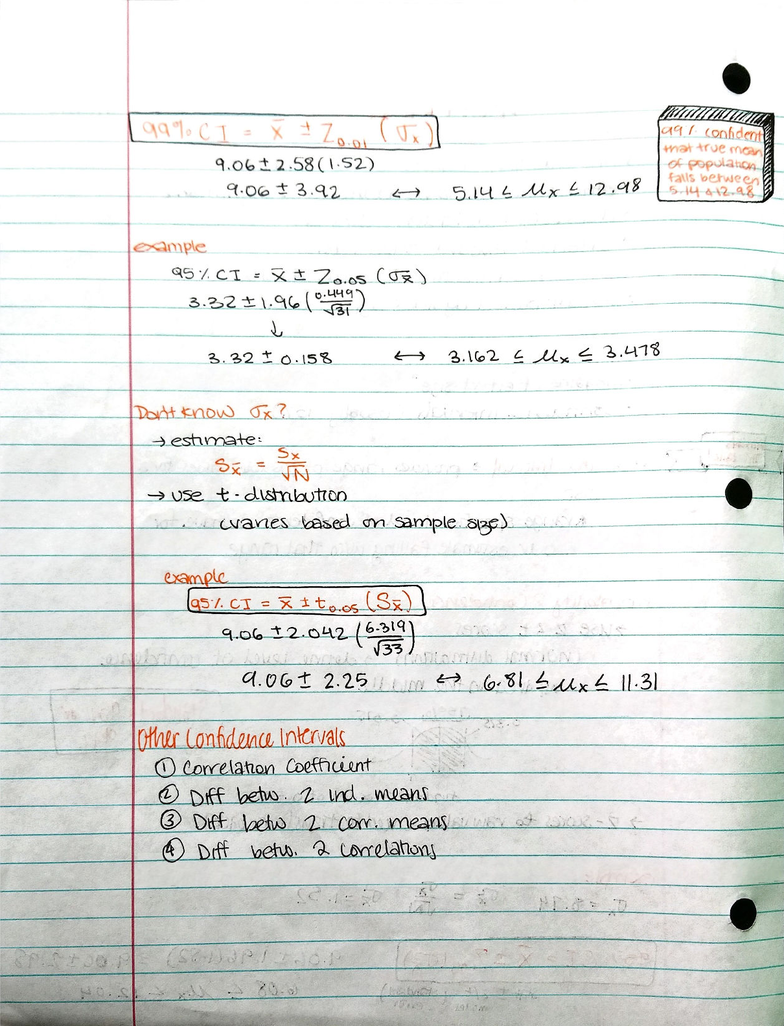 99% CI = x̄ ± Z0.01 (σx̄)
99% confident
that true mean
of population
falls between
5.14 & 12.98
9.06 ± 2.58 (1.52)
9.06 ± 3.92 ↔ 5.14 ≤ μx ≤ 12.98
example
95% CI = x̄ ± Z0.05 (σx̄)
3.32 ± 1.96 (0.449/√31)
↓
3.32 ± 0.158 ↔ 3.162 ≤ μx ≤ 3.478
Don't know σx?
→ estimate:
Sx̄ = Sx/√N
→ use t-distribution
(varies based on sample size)
example
95% CI = x̄ ± t0.05 (Sx̄)
9.06 ± 2.042 (6.319/√33)
9.06 ± 2.25 ↔ 6.81 ≤ μx ≤ 11.31
Other Confidence Intervals
① Correlation Coefficient
② Diff betw. 2 ind. means
③ Diff betw 2 corr. means
④ Diff betw. 2 correlations